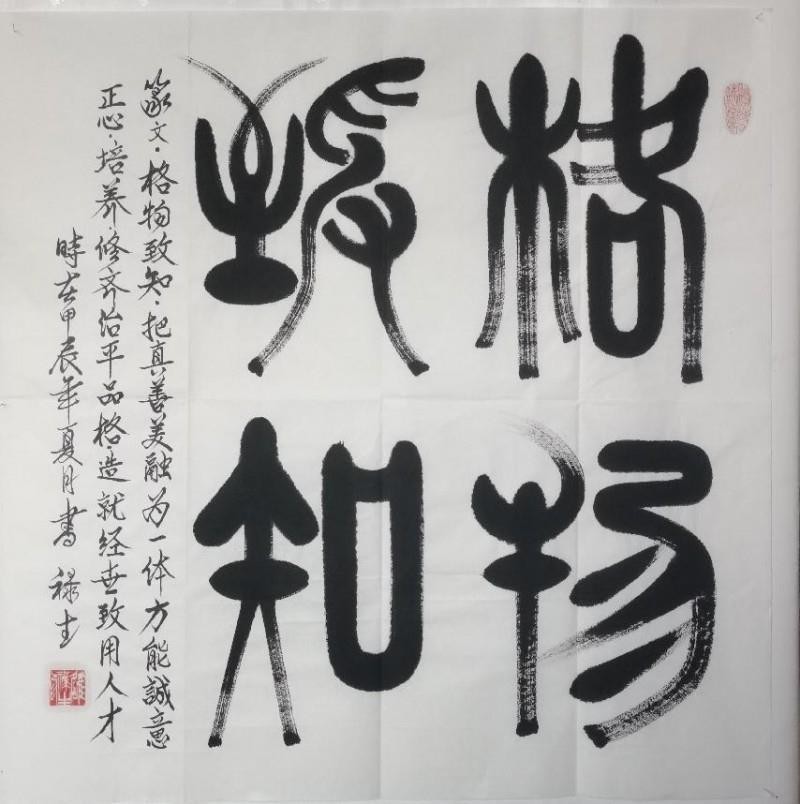 格物
致知
篆文·格物致知·把真善美融为一体方能誠意
正心·培养·修齐治平品格·造就经世致用人才
時在甲辰年夏月書 禄生